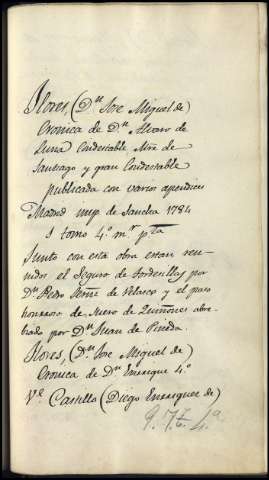 Flores, (Dn Jose Miguel de)
Cronica de Dn Alvaro de
Luna Condestable Mre de
Santiago y gran Condestable
publicada con varios apendices
Madrid imp de Sancha 1784
1 tomo 4º mr pta
Junto con esta obra estan reu-
nidos el Seguro de Tordesillas por
Dn Pedro Ferne de Velasco y el paso
honroso de Suero de Quiñones abre-
biado por Dn Juan de Pineda.
Flores, (Dn Jose Miguel de)
Cronica de Dn Enrique 4º
Ve Castillo (Diego Enriquez de)